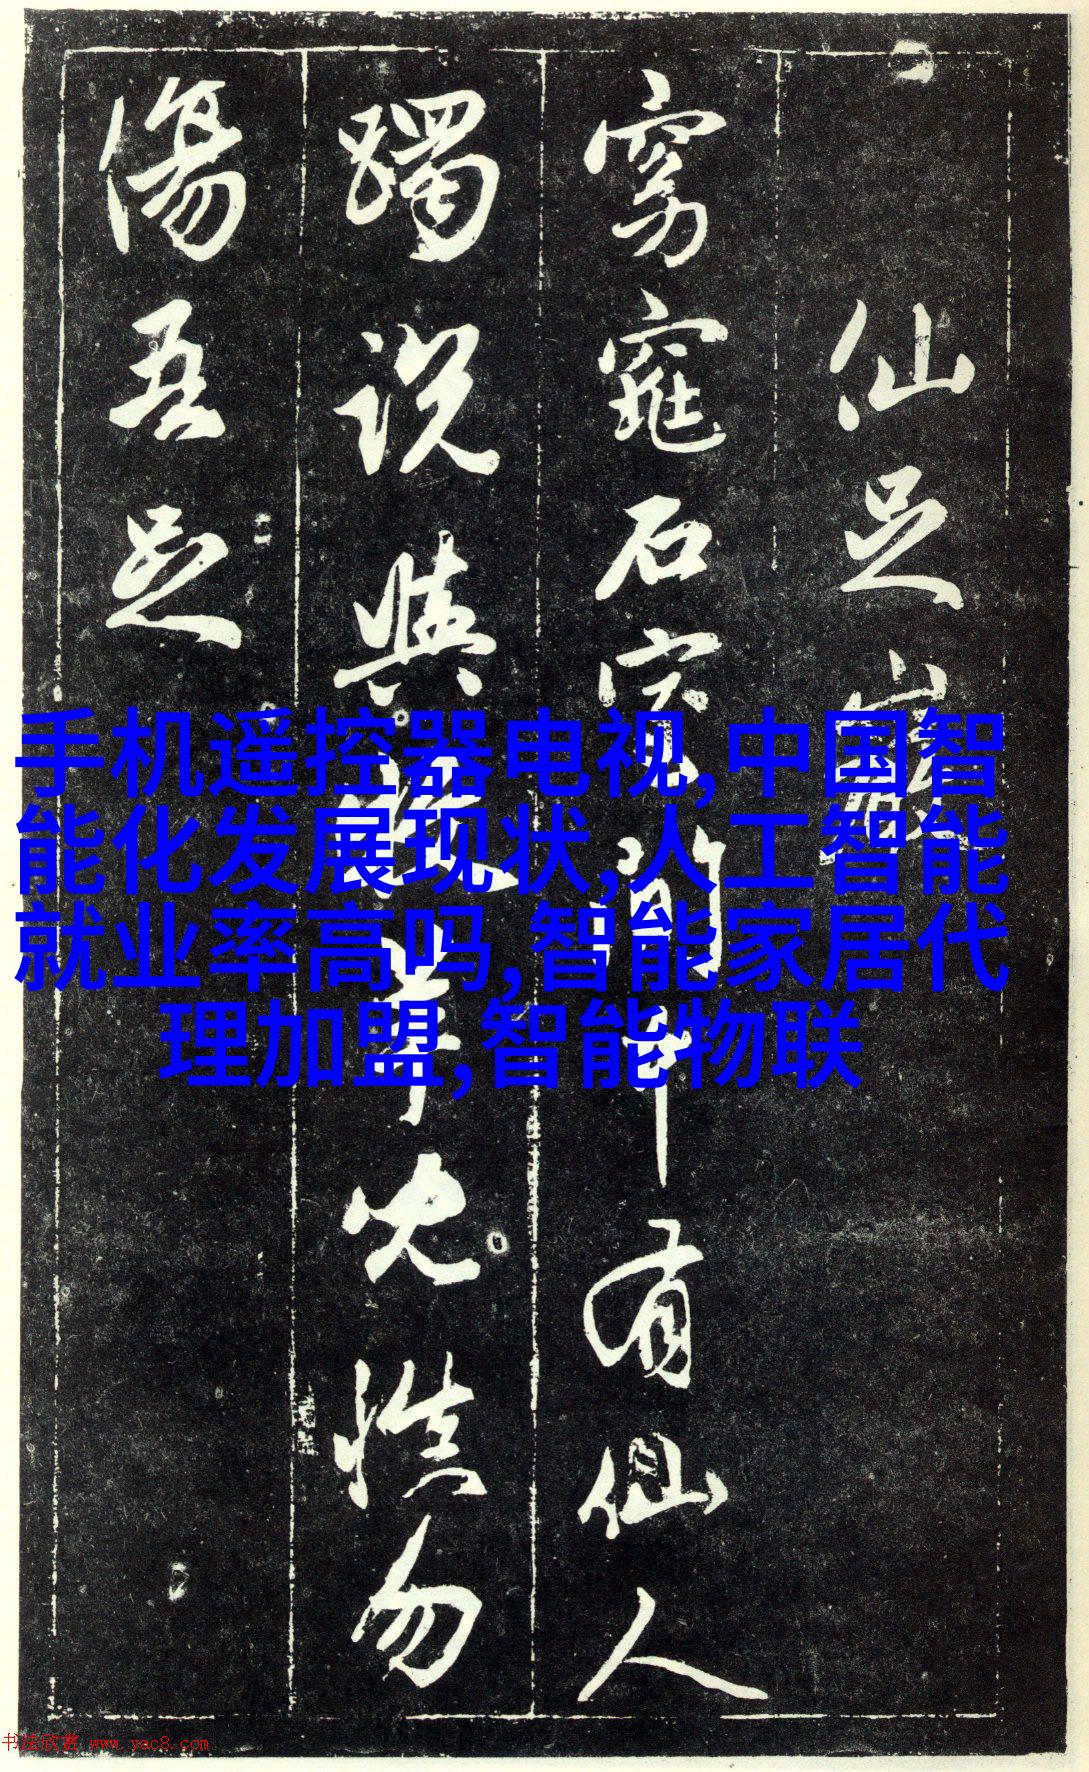 仙足巖
窈窕石室間中有仙人
躅說與兒慎勿
傷吾足
手机遥控器电视,中国智
能化发展现状,人工智能
就业率高吗,智能家居代
理加盟,智能物联
书法欣赏 www.yac8.com